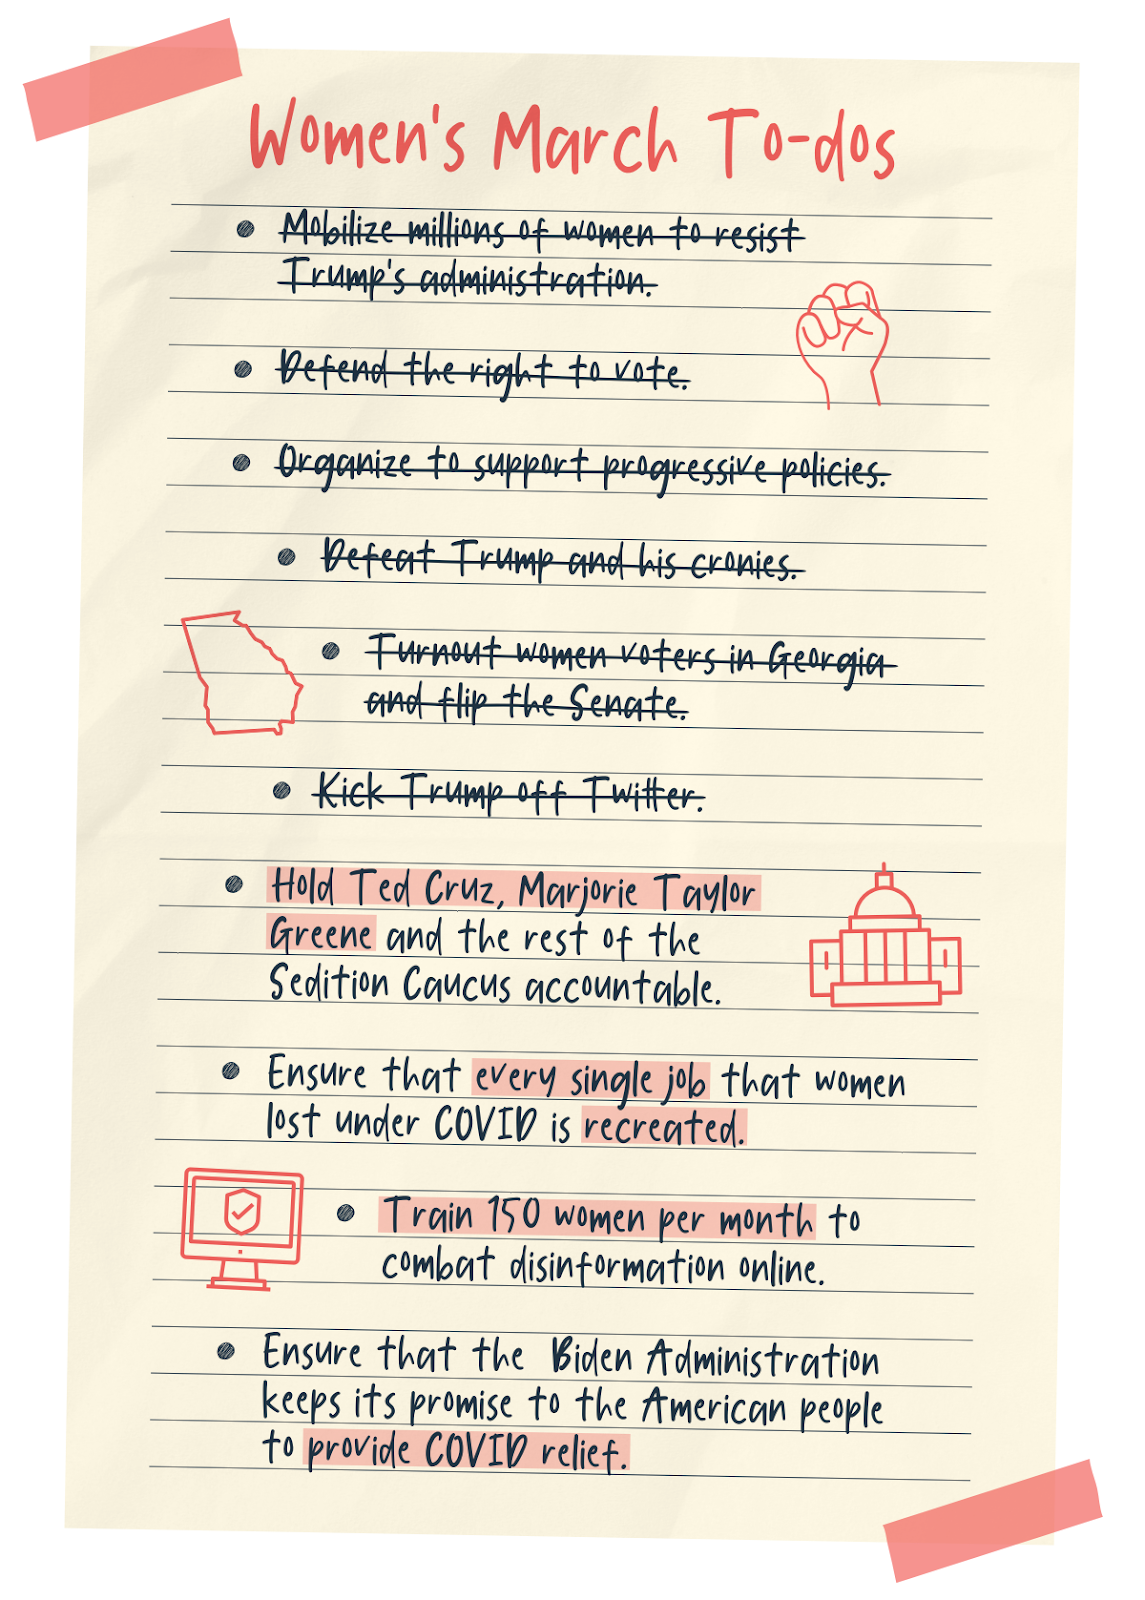 Women's March To-dos
Mobilize millions of women to resist
Trump's administration.
Defend the right to vote.
Organize to support progressive policies.
Defeat Trump and his cronies.
Turnout women voters in Georgia
and flip the Senate.
Kick Trump off Twitter.
Hold Ted Cruz, Marjorie Taylor
Greene and the rest of the
Sedition Caucus accountable.
Ensure that every single job that women
lost under COVID is recreated.
Train 150 women per month to
combat disinformation online.
Ensure that the Biden Administration
keeps its promise to the American people
to provide COVID relief.